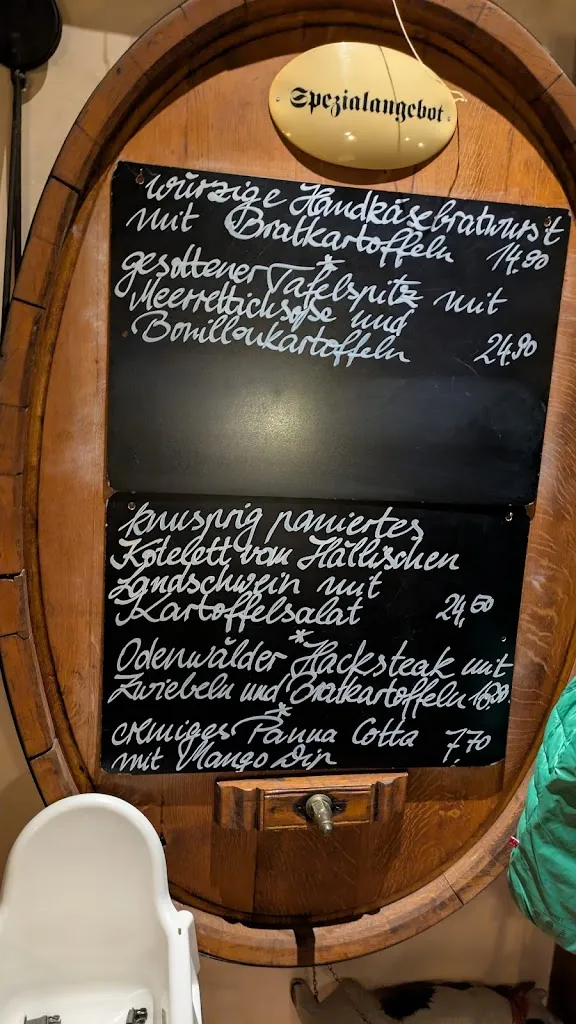 Spezialangebot
würzige Handkäsebratwurst
mit Bratkartoffeln 14.90
*
gesottener Tafelspitz mit
Meerrettichsoße und
Bouillonkartoffeln 24.90
knusprig paniertes
Kotelett vom Hällischen
Landschwein mit
Kartoffelsalat 24,60
*
Odenwälder Hacksteak mit
Zwiebeln und Bratkartoffeln
*
cremiges Panna Cotta 7,70
mit Mango Dip